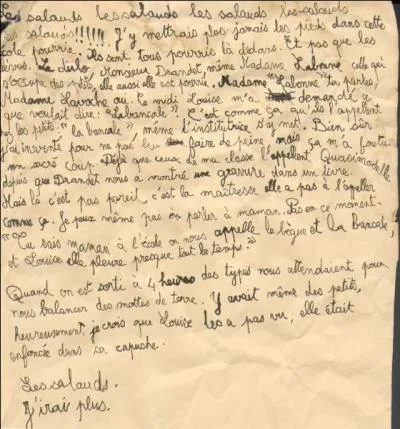 Les salauds les salauds les salauds les salauds
les salauds!!!!!! J'y mettrais plus jamais les pieds dans cette
école pourrie. Ils sont tous pourris là dedans. Et pas que les
élèves. Le dirlo Monsieur Drandet, même Madame Labonne celle qui
s'occupe des petits, elle aussi elle est pourrie. Madame "Labonne" tu parles,
Madame Lavache ou. Ce midi Louise m'a demandé ce
que voulait dire: "Labancale" C'est comme ça qu'ils l'appellent
les petits. "la bancale", même l'institutrice s'y met. Bien sûr
j'ai inventé pour ne pas lui faire de peine, mais ça m'a foutu
un sacré coup. Déjà que ceux de ma classe l'appellent Quasimodette
depuis que Drandet nous a montré une gravure dans un livre.
Mais là c'est pas pareil, c'est la maîtresse elle a pas à l'appeler
comme ça. Je peux même pas en parler à maman. Pas en ce moment.
"Tu sais maman à l'école on nous appelle le bègue et la bancale,
et Louise elle pleure presque tout le temps."
Quand on est sorti à 4 heures des types nous attendaient pour
nous balancer des mottes de terre. Y avait même des petits,
heureusement je crois que Louise les a pas vu, elle était
enfoncée dans sa capuche.
Les salauds.
J'irai plus.